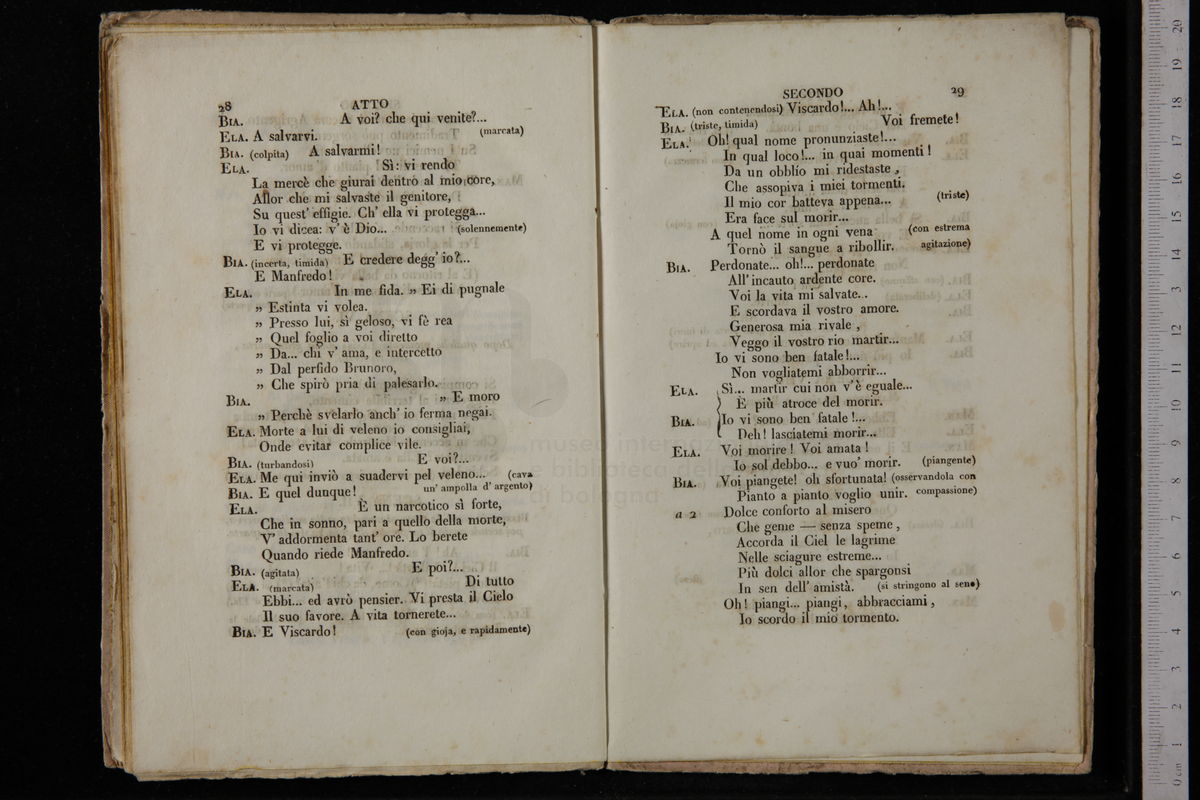 28 ATTO
BIA. A voi? che qui venite?...
ELA. A salvarvi. (marcata)
BIA. (colpita) A salvarmi!
ELA. Sì: vi rendo
La mercè che giurai dentro al mio core,
Allor che mi salvaste il genitore,
Su quest' effigie. Ch' ella vi protegga...
Io vi dicea: v' è Dio... (solennemente)
E vi protegge.
BIA. (incerta, timida) E credere degg' io?...
E Manfredo!
ELA. In me fida. „ Ei di pugnale
„ Estinta vi volea.
„ Presso lui, sì geloso, vi fè rea
„ Quel foglio a voi diretto
„ Da... chi v' ama, e intercetto
„ Dal perfido Brunoro,
„ Che spirò pria di palesarlo.
BIA. „ E moro
„ Perchè svelarlo anch' io ferma negai.
ELA. Morte a lui di veleno io consigliai,
Onde evitar complice vile.
BIA. (turbandosi) E voi?...
ELA. Me qui inviò a suadervi pel veleno... (cava
BIA. E quel dunque! un' ampolla d' argento)
ELA. È un narcotico sì forte,
Che in sonno, pari a quello della morte,
V' addormenta tant' ore. Lo berete
Quando riede Manfredo.
BIA. (agitata) E poi?...
ELA. (marcata) Di tutto
Ebbi... ed avrò pensier. Vi presta il Cielo
Il suo favore. A vita tornerete...
BIA. E Viscardo! (con gioja, e rapidamente)
SECONDO 29
ELA. (non contenendosi) Viscardo!... Ah!...
BIA. (triste, timida) Voi fremete!
ELA. Oh! qual nome pronunziaste!...
In qual loco!... in quai momenti!
Da un obblìo mi ridestaste,
Che assopiva i miei tormenti.
Il mio cor batteva appena... (triste)
Era face sul morir...
A quel nome in ogni vena (con estrema
Tornò il sangue a ribollir. agitazione)
BIA. Perdonate... oh!... perdonate
All' incauto ardente core.
Voi la vita mi salvate..
E scordava il vostro amore.
Generosa mia rivale,
Veggo il vostro rio martir...
Io vi sono ben fatale!...
Non vogliatemi abborrir...
ELA. Sì... martir cui non v' è eguale...
È più atroce del morir.
BIA. Io vi sono ben fatale!...
Deh! lasciatemi morir...
ELA. Voi morire! Voi amata!
Io sol debbo... e vuo' morir. (piangente)
BIA. Voi piangete! oh sfortunata! (osservandola con
Pianto a pianto voglio unir. compassione)
a 2 Dolce conforto al misero
Che geme — senza speme,
Accorda il Ciel le lagrime
Nelle sciagure estreme...
Più dolci allor che spargonsi
In sen dell' amistà. (si stringono al seno)
Oh! piangi... piangi, abbracciami,
Io scordo il mio tormento.
museo internazionale
e biblioteca della
di bologna
0 cm 1 2 3 4 5 6 7 8 9 10 11 12 13 14 15 16 17 18 19 20